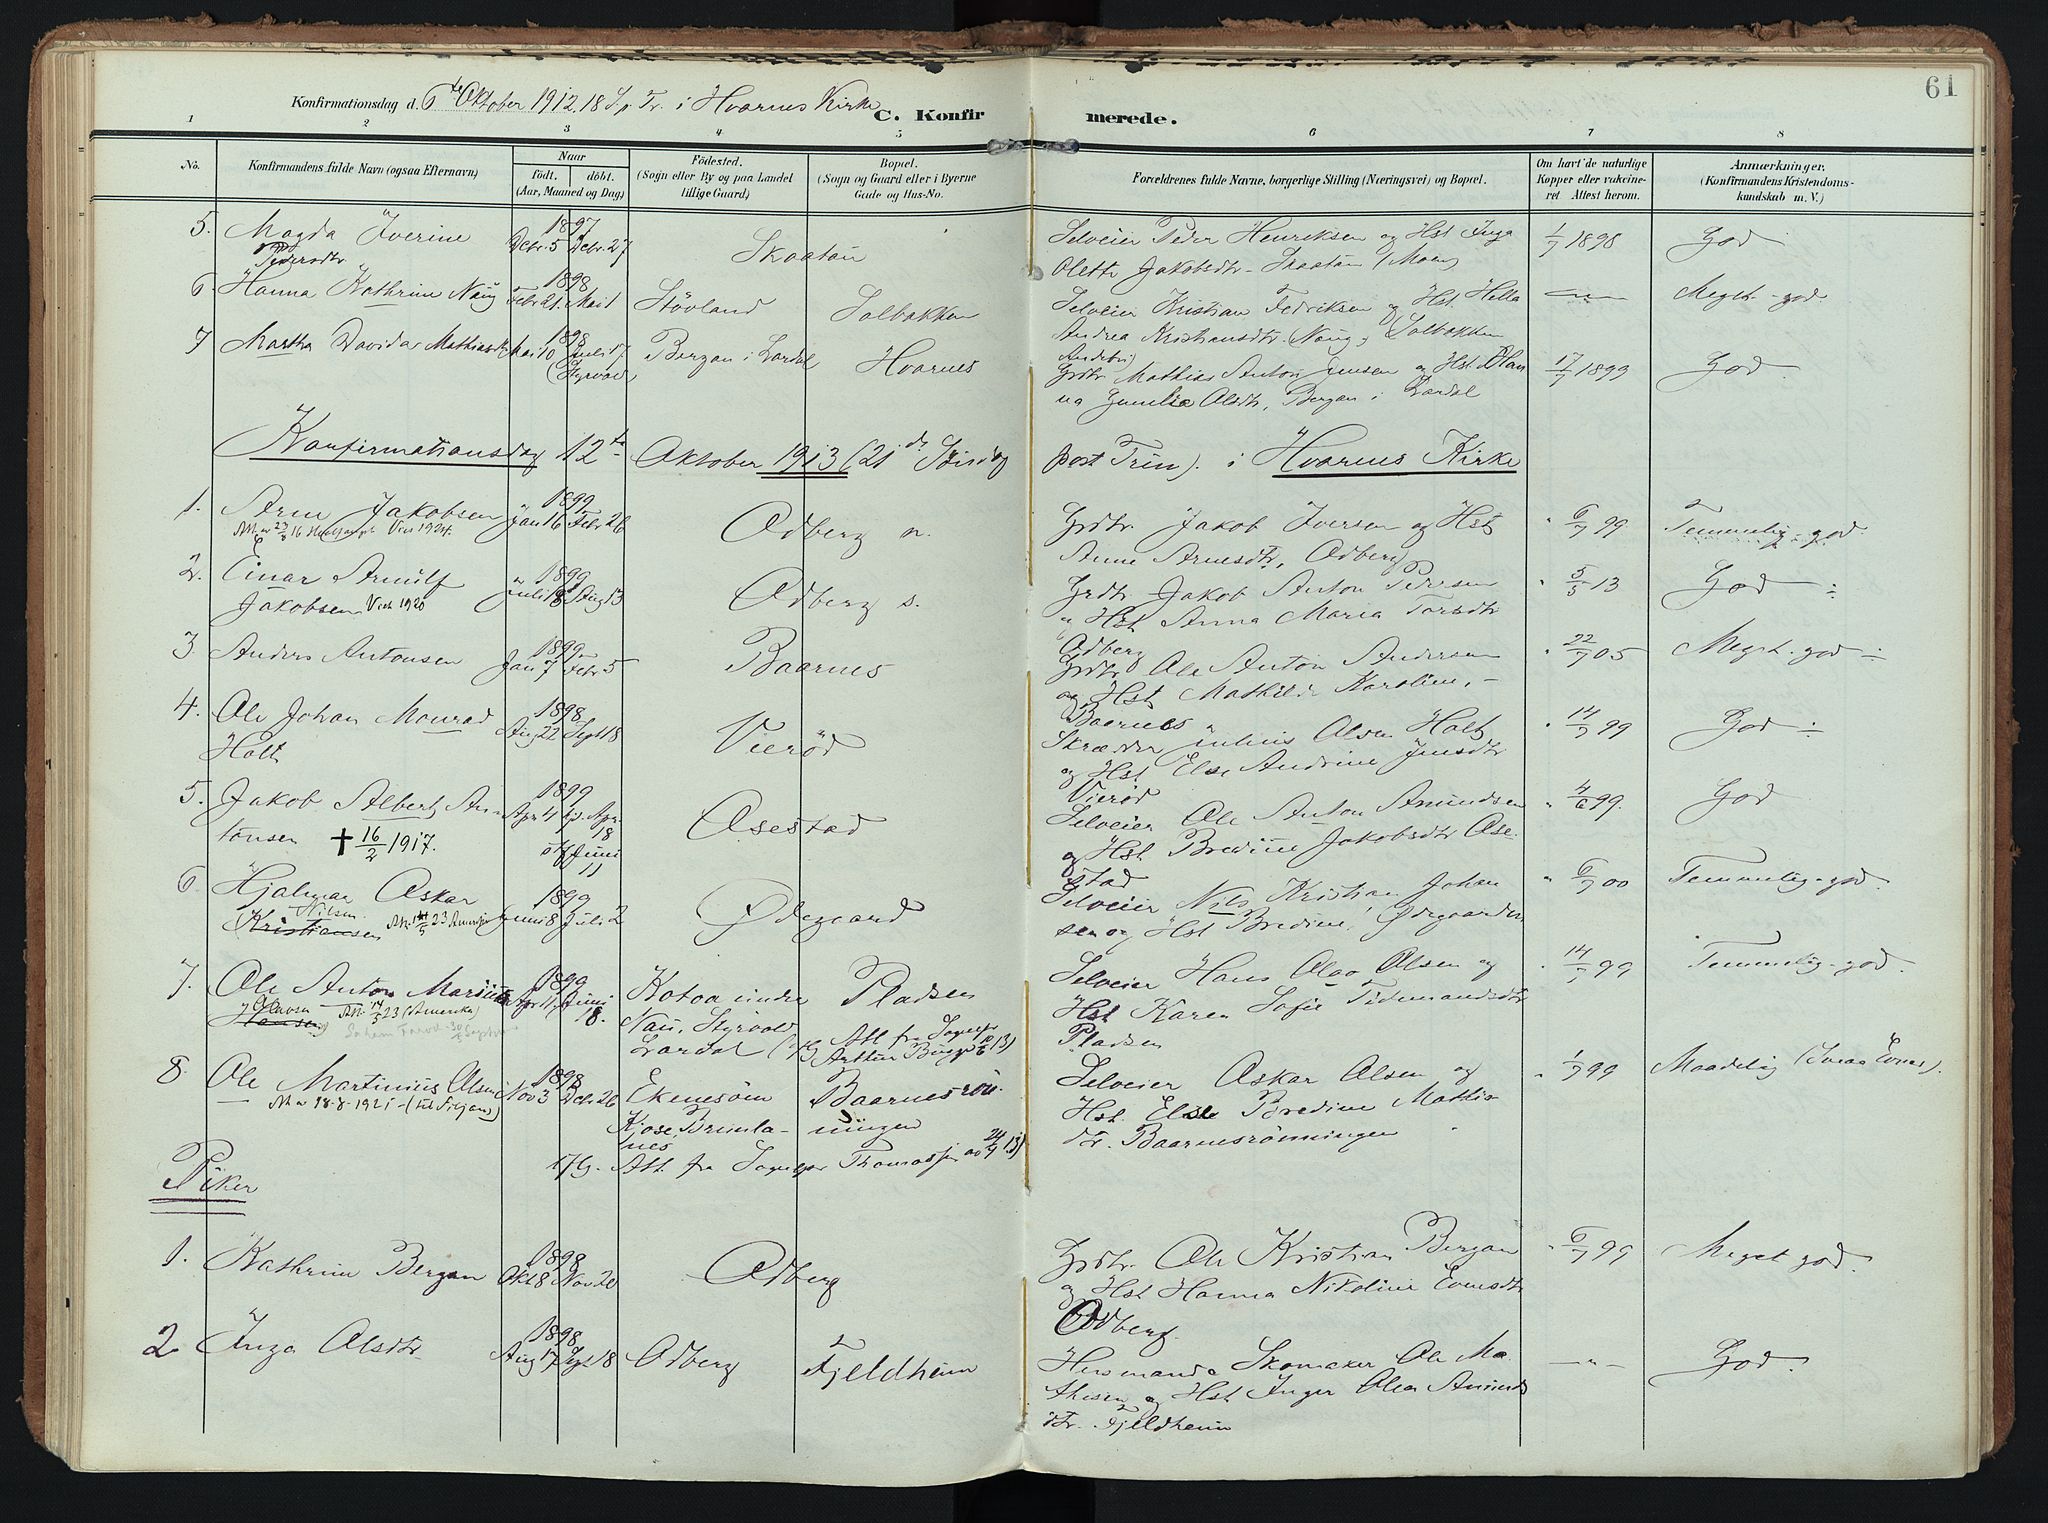 61
Konfirmationsdag d. 6te Oktober 1912. 18 S. p. Tr. i Hvarnes Kirke
C. Konfirmerede.
1 2 3 4 5 6 7 8
No. Konfirmandens fulde Navn (ogsaa Efternavn) Naar født. døbt. (Aar, Maaned og Dag) Fødested. (Sogn eller By og paa Landet tillige Gaard) Bopæl. (Sogn og Gaard eller i Byerne Gade og Hus-No. Forældrenes fulde Navne, borgerlige Stilling (Næringsvei) og Bopæl. Om havt de naturlige Kopper eller vaccineret Attest herom. Anmærkninger. (Konfirmandens Kristendomskundskab m. V.)
5. Magda Iverine 1897 Selveier Peder Henriksen og Hst Inga 1/7 1898 God
Pedersdtr Decbr. 5 Decbr. 27 Skaatøn Olette Jakobsdtr Skaatøn (Moen)
6. Hanna Kathrine Naug 1898 Febr 21. Mai 1 Støvland Solbakken Selveier Kristian Fedriksen og Hst Hella — " — Meget god
Andrea Kristiansdtr. Naug, Solbakken
7 Martha Davida Mathiasdtr 1898 Mai 10 Juli 17 Bergan i Lardal Hvarnes Andebu)
(Styrvold) Grdbr. Mathias Anton Jensen og Hst Han 17/7 1899 God
na Ol[s]dtr, Bergan i Lardal
Konfirmationsdag 12te Oktober 1913 (21de Søndag post Trin). i Hvarnes Kirke
1. Arne Jakobsen 1899 Jan 16 Febr. 26 Odberg n. Grdbr. Jakob Iversen og Hst " 6/7 99 Temmelig god
Viet 1924. Anne Arnesdtr, Odberg
2. Einar Arnulf 1899 Juli 8 Aug 13 Odberg s. Grdbr Jakob Anton Pedersen " 5/5 13 God ÷
Jakobsen Viet 1920 og Hst Anna Maria Torsdtr
Odberg
3. Anders Antonsen 1899 Jan 7 Febr 5 Baarnes Grdbr Ole Anton Andersen " 22/7 05 Meget god ÷
og Hst Mathilde Karoline, -
Baarnes
4. Ole Johan Monrad 1898 Aug 22 Sept 18 Vierød Skrædder Julius Olsen Holt " 14/7 99 God ÷
Holt og Hst Else Andrine Jensdtr
Vierød
5. Jakob Albert An- 1899 Apr 4 Hj. Apr. 18 Osestad Selveier Ole Anton Amundsen " 4/6 99. God
tonsen + 16/2 1917. st Juni 11 og Hst Bredine Jakobsdtr Ose-
stad
6 Hjalmar Oskar 1899 Juni 8 Juli 2 Ødegaard Selveier Nils Kristian Johan " 6/7 00 Temmelig god.
Nilsen
Kristiansen Att. 14/5 23 Amerika sen og Hst Bredine, Ødegaarden
7. Ole Anton Marius 1899 Apr 11 Juni 18. Kotoa undre Pladsen Selveier Hans Olao Olsen og " 14/7 99 Temmelig god.
Olavsen Att. 14/5 23 (Amerika) Nau, Styrvold Hst Karen Sofie Tidemandsdtr
Hansen Lardal Att fra Sognepr Arthur Bugge 10/6 13) Pladsen
8. Ole Martinius Olsen 1898 Nov 3 Decbr 26 Ekenesøm Baarnesrøn- Selveier Oskar Olsen og " 1/7 99 Maadelig (svage Evner).
18-8-1921 Kjose, Brunla- ningen Hst. Else Bredine Mathia
nes dtr. Baarnesrønningen
Att. fra Sognepr Thomas 24/9 13)
Piker
1. Kathrine Bergan 1898 Okt 8 Nov 20 Odberg Grdbr. Ole Kristian Bergan " 6/7 99 Meget god.
og Hst Hanna Nikoline Evensdtr
Odberg.
2. Inga Olsdtr 1898 Aug 17 Sept 18 Odberg Fjeldheim Husmand Skomaker Ole Ma- — " — God.
thisen og Hst Inger Olea Amunds
dtr. Fjeldheim